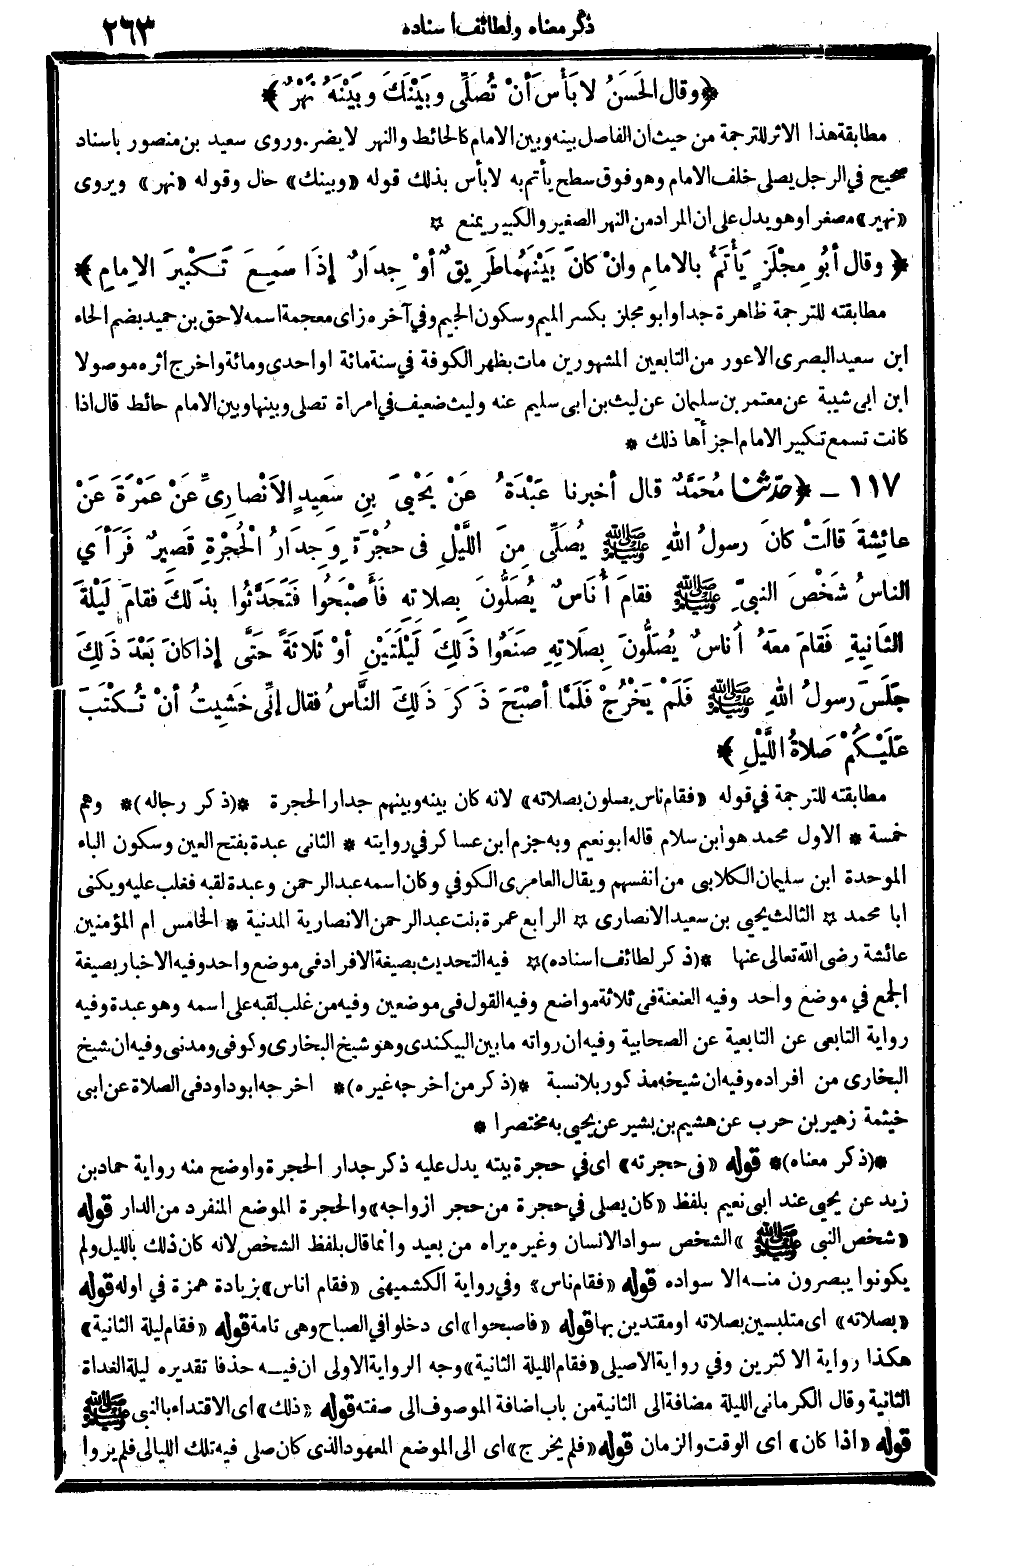 ذكر معناه ولطائف اسناده
٢٦٣
﴿وقال الحَسَنُ لا بَأْسَ أَنْ تُصَلِّى وبَيْنَكَ وبَيْنَهُ نَهْرٌ﴾
مطابقة هذا الاثر للترجمة من حيث ان الفاصل بينه وبين الامام كالحائط والنهر لا يضر. وروى سعيد بن منصور باسناد
صحيح في الرجل يصلى خلف الامام وهو فوق سطح يأتم به لا بأس بذلك قوله «وبينك» حال وقوله «نهر» ويروى
«نهير» مصغرا وهو يدل على ان المراد من النهر الصغير والكبير يمنع ☆
﴿وقال أبُو مِجْلَزٍ يَأْتَمُّ بالامامِ وانْ كانَ بَيْنَهُما طَرِيقٌ أوْ جِدَارٌ إذَا سَمِعَ تَكْبِيرَ الإمامِ﴾
مطابقته للترجمة ظاهرة جدا وابو مجلز بكسر الميم وسكون الجيم وفي آخره زاى معجمة اسمه لاحق بن حميد بضم الحاء
ابن سعيد البصرى الاعور من التابعين المشهورين مات بظهر الكوفة في سنة مائة او احدى ومائة واخرج اثره موصولا
ابن ابى شيبة عن معتمر بن سليمان عن ليث بن ابى سليم عنه وليث ضعيف في امراة تصلى وبينها وبين الامام حائط قال اذا
كانت تسمع تكبير الامام اجزأها ذلك *
١١٧ ـ ﴿حَدَّثَنَا مُحَمَّدٌ قال أخبرنا عَبْدَةُ عَنْ يَحْيىَ بنِ سَعِيدٍ الأَنْصارِيِّ عَنْ عَمْرَةَ عَنْ
عائِشَةَ قالَتْ كانَ رسولُ اللهِ ﷺ يُصَلِّى مِنَ اللَّيْلِ فى حُجْرَتِهِ وجِدَارُ الْحُجْرَةِ قَصِيرٌ فَرَأَي
الناسُ شَخْصَ النبىِّ ﷺ فقامَ أُناسٌ يُصَلُّونَ بِصلاتِهِ فَأَصْبَحُوا فَتَحَدَّثُوا بذلكَ فقامَ لَيْلَةَ
الثَّانِيةِ فَقامَ معَهُ أُناسٌ يُصَلُّونَ بِصَلاتِهِ صَنَعُوا ذلِكَ لَيْلَتَيْنِ أوْ ثَلاثَةً حَتَّى إذا كانَ بَعْدَ ذلِكَ
جَلَسَ رسولُ اللهِ ﷺ فَلَمْ يَخْرُجْ فَلَمَّا أصْبَحَ ذَكَرَ ذلِكَ النَّاسُ فقال إنِّى خَشِيتُ أنْ تُكْتَبَ
عَلَيْكُمْ صَلاةُ اللَّيْلِ﴾
مطابقته للترجمة في قوله «فقام ناس يصلون بصلاته» لانه كان بينه وبينهم جدار الحجرة *(ذكر رجاله)* وهم
خمسة * الاول محمد هو ابن سلام قاله ابو نعيم وبه جزم ابن عساكر في روايته * الثانى عبدة بفتح العين وسكون الباء
الموحدة ابن سليمان الكلابى من انفسهم ويقال العامرى الكوفي وكان اسمه عبد الرحمن وعبدة لقبه فغلب عليه ويكنى
ابا محمد ☆ الثالث يحيى بن سعيد الانصارى ☆ الرابع عمرة بنت عبد الرحمن الانصارية المدنية * الخامس ام المؤمنين
عائشة رضى الله تعالى عنها *(ذكر لطائف اسناده)☆ فيه التحديث بصيغة الافراد فى موضع واحد وفيه الاخبار بصيغة
الجمع في موضع واحد وفيه العنعنة فى ثلاثة مواضع وفيه القول فى موضعين وفيه من غلب لقبه على اسمه وهو عبدة وفيه
رواية التابعى عن التابعية عن الصحابية وفيه ان رواته ما بين البيكندى وهو شيخ البخارى وكوفى ومدنى وفيه ان شيخ
البخارى من افراده وفيه ان شيخه مذكور بلا نسبة *(ذكر من اخرجه غيره)* اخرجه ابو داود فى الصلاة عن ابى
خيثمة زهير بن حرب عن هشيم بن بشير عن يحيى به مختصرا *
*(ذكر معناه)* قوله «فى حجرته» اى في حجرة بيته يدل عليه ذكر جدار الحجرة واوضح منه رواية حماد بن
زيد عن يحيى عند ابى نعيم بلفظ «كان يصلى في حجرة من حجر ازواجه» والحجرة الموضع المنفرد من الدار قوله
«شخص النبى ﷺ» الشخص سواد الانسان وغيره يراه من بعيد وانما قال بلفظ الشخص لانه كان ذلك بالليل ولم
يكونوا يبصرون منه الا سواده قوله «فقام ناس» وفي رواية الكشميهنى «فقام اناس» بزيادة همزة في اوله قوله
«بصلاته» اى متلبسين بصلاته او مقتدين بها قوله «فاصبحوا» اى دخلوا في الصباح وهى تامة قوله «فقام ليلة الثانية»
هكذا رواية الاكثرين وفي رواية الاصيلى «فقام الليلة الثانية» وجه الرواية الاولى ان فيه حذفا تقديره ليلة الغداة
الثانية وقال الكرمانى الليلة مضافة الى الثانية من باب اضافة الموصوف الى صفته قوله «ذلك» اى الاقتداء بالنبى ﷺ
قوله «اذا كان» اى الوقت والزمان قوله «فلم يخرج» اى الى الموضع المعهود الذى كان صلى فيه تلك الليالى فلم يروا